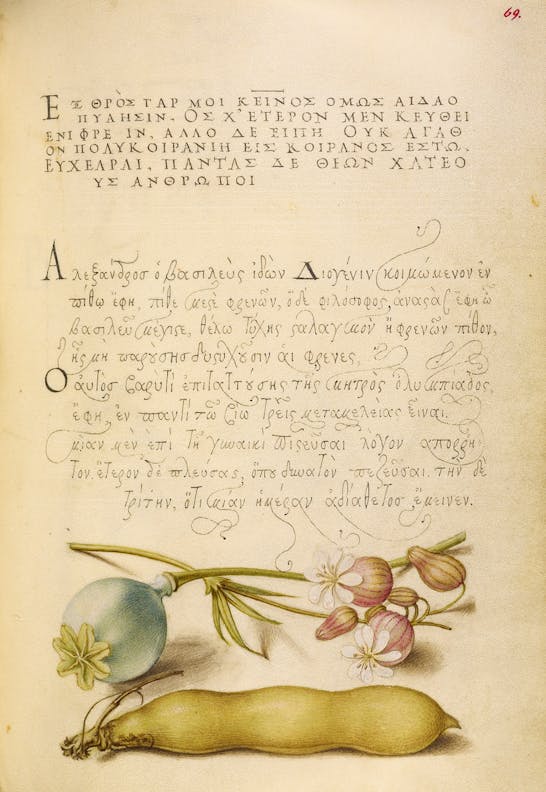 69.
ΕΞ ΘΡῸΣ ΓΑΡ ΜΟΙ ΚΕΙΝΟΣ ΟΜΩΣ ΑΙΔΑΟ
ΠΥΛΗΣΙΝ. ΟΣ Χ' ΕΤΕΡΟΝ ΜΕΝ ΚΕΥΘΕΙ
ΕΝΙ ΦΡΕ ΙΝ, ΑΛΛΟ ΔΕ ΕΙΠΗ ΟΥΚ ΑΓΑΘ
ΟΝ ΠΟΛΥΚΟΙΡΑΝΙΗ ΕΙΣ ΚΟΙΡΑΝΟΣ ΕΣΤΩ.
ΠΑΝΤΑΣ ΔΕ ΘΕΩΝ ΧΑΤΕΟ
ΥΣ ΑΝΘΡΩΠΟΙ
Αλεξανδρος ὁ βασιλεὺς ἰδὼν Διογένιν κοιμώμενον ἐν
πίθω ἔφη, πίθε μεϛὲ φρενῶν, ὁ δὲ φιλόσοφος, ἀναϛὰς ἔφη ὦ
βασιλεῦ μέγιϛε, θέλω τύχης ϛαλαγμὸν ἢ φρενῶν πίθον,
ἧς μὴ παρύσης δυϛυχῦσιν αἱ φρενες,
Ο αὐτὸς ἐπιταττύσης τῆς μητρὸς ὀλυμπιάδος,
ἔφη, ἐν παντὶ τῶ βίω τρεῖς μεταμελείας εἶναι.
μίαν μὲν ἐπὶ τῆ γυναικὶ πιϛεῦσαι λόγον ἀπορρη
τον, ἕτερον δὲ πλεύσας, ὅπυ δυνατὸν πεζεῦσαι. τὴν δὲ
τρίτην, ὅτι μίαν ἡμέραν ἀδιάθετος ἔμεινεν.